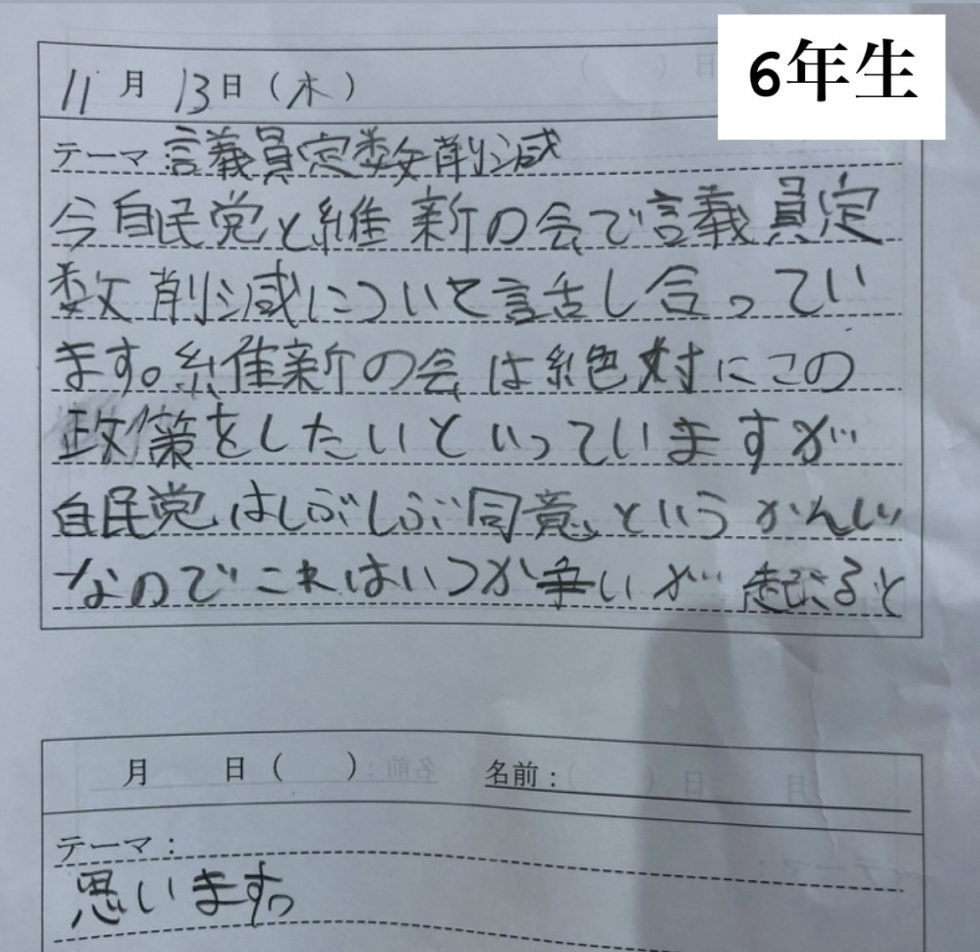 6年生
11月13日(木)
テーマ 議員定数削減
今自民党と維新の会で議員定
数削減について話し合ってい
ます。維新の会は絶対にこの
政策をしたいといっていますが
自民党はしぶしぶ同意というかんじ
なのでこれはいつか争いが起こると
月 日( ) 名前:
テーマ:
思います。